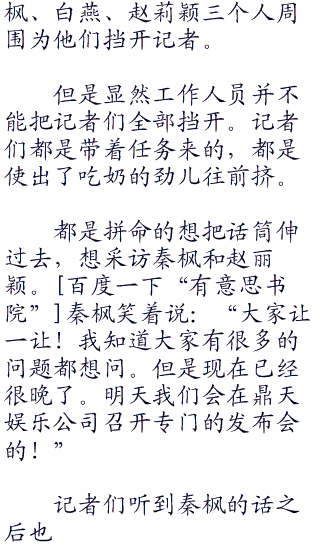 枫、白燕、赵莉颖三个人周
围为他们挡开记者。
但是显然工作人员并不
能把记者们全部挡开。记者
们都是带着任务来的，都是
使出了吃奶的劲儿往前挤。
都是拼命的想把话筒伸
过去，想采访秦枫和赵丽
颖。[百度一下“有意思书
院”]秦枫笑着说：“大家让
一让！我知道大家有很多的
问题都想问。但是现在已经
很晚了。明天我们会在鼎天
娱乐公司召开专门的发布会
的！”
记者们听到秦枫的话之
后也